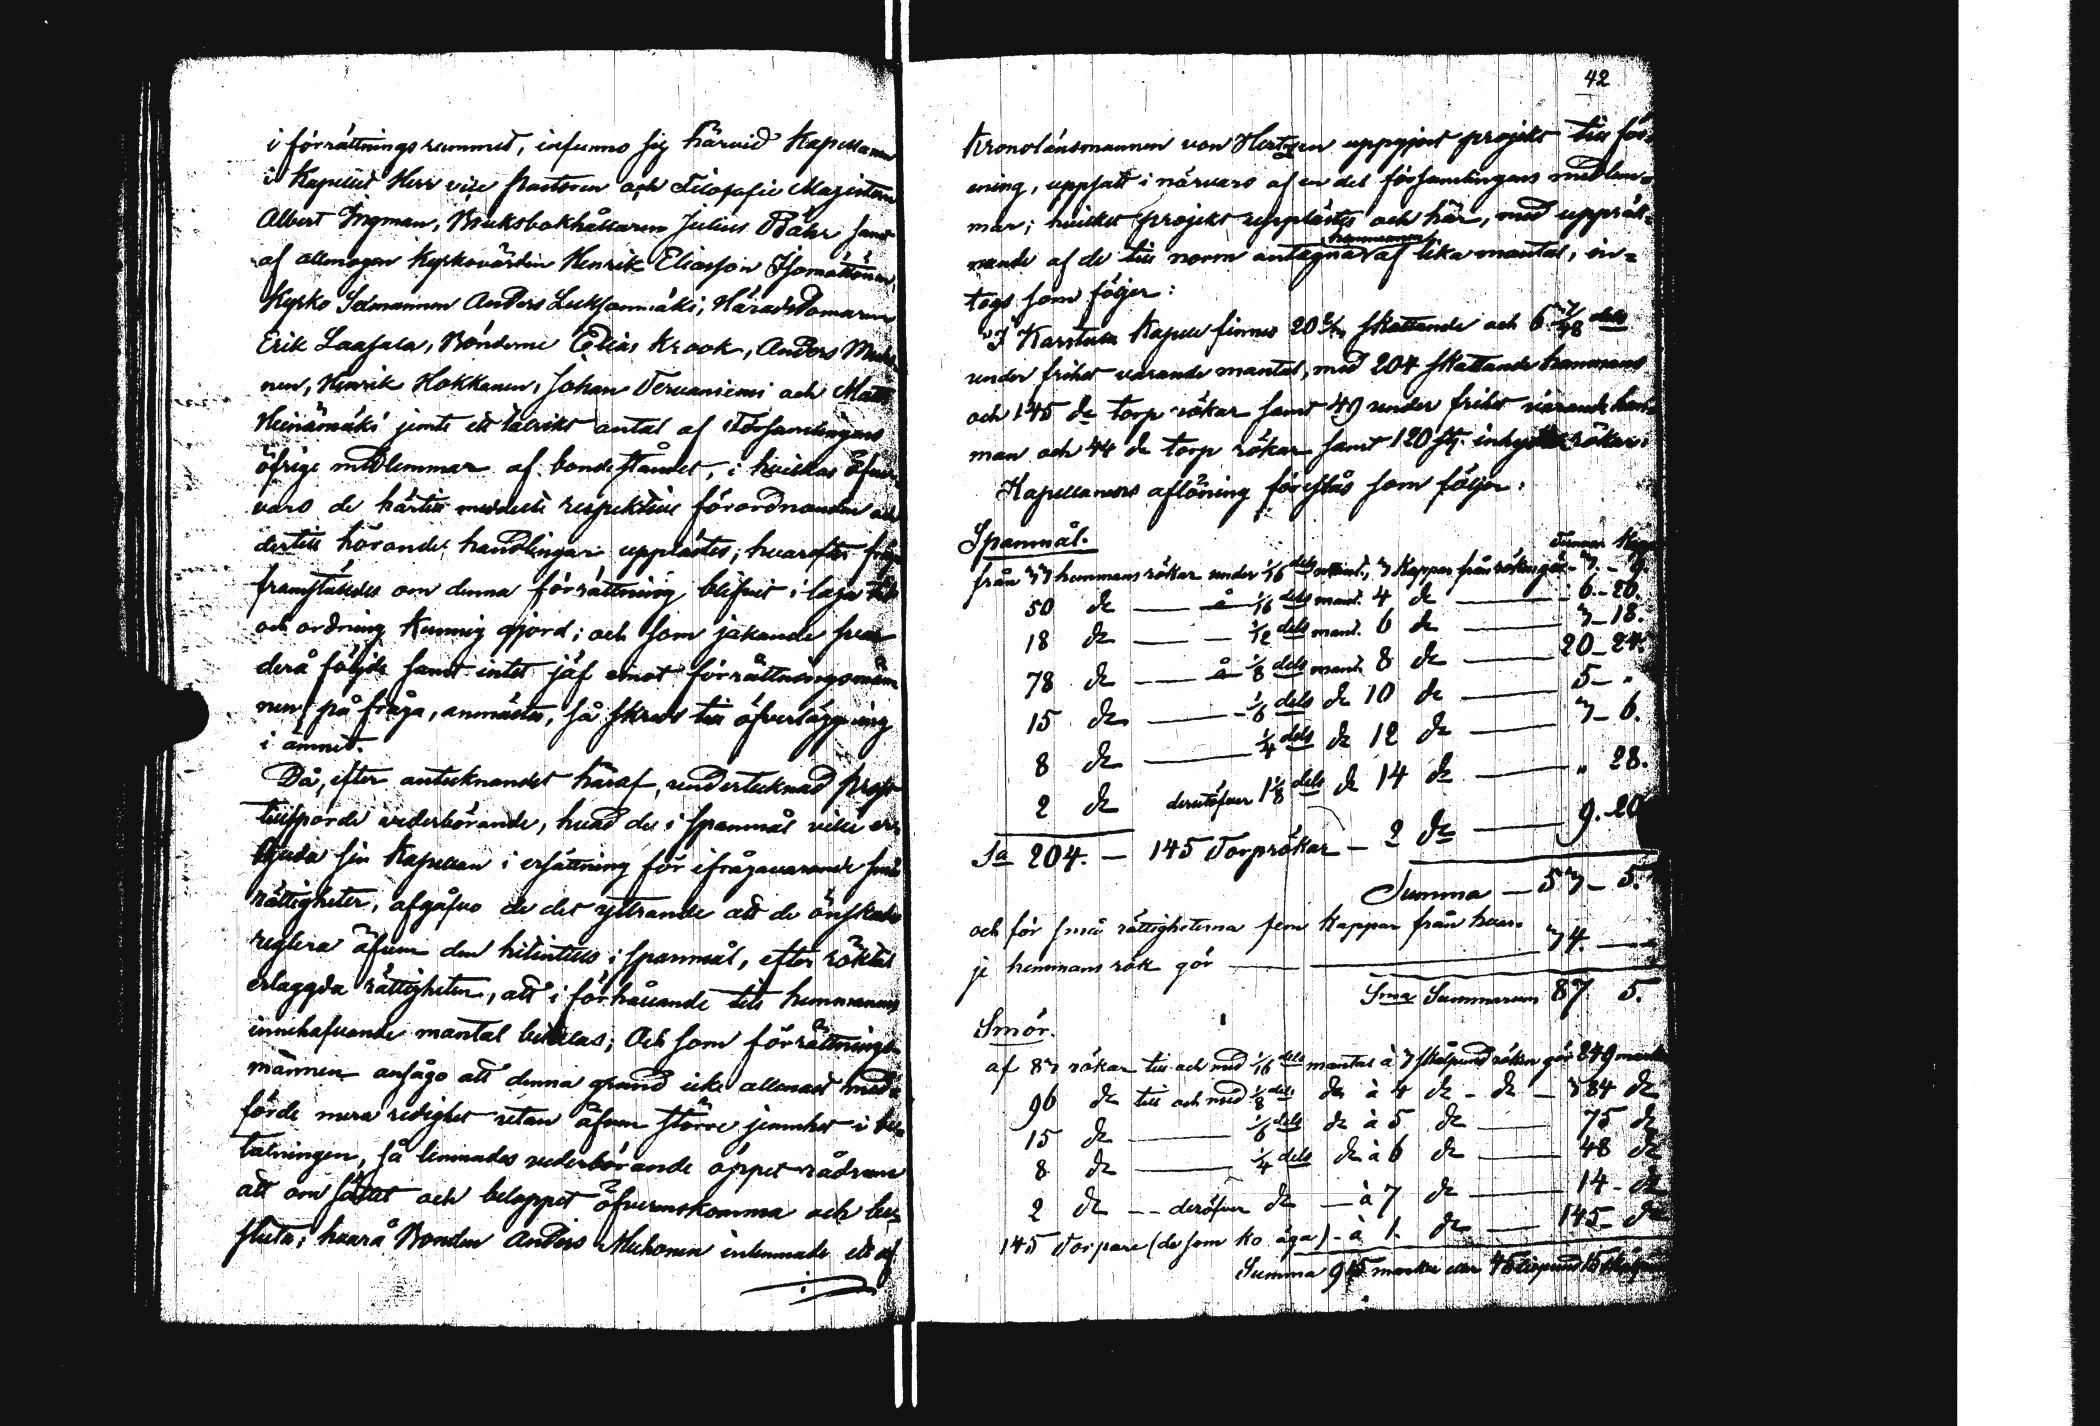 i förrättningsrummet, infunno sig härvid Kapellanen
i Kapellet Herr vice Pastoren och Filosofie Magistern
Albert Ingman, Bruksbokhållaren Julius Bähr samt
af allmogen Kyrkovärden Henrik Eliasson Isomöttönen,
Kyrko Sexmannen Anders Leuksonmäki, Häradsdomaren
Erik Laasala, Bönderne Elias Krook, Anders
nen, Henrik Hokkanen, Johan Tervaniemi och Matts
Heinämäki jemte ett talrikt antal af Församlingens
öfrige medlemmar af bondeståndet, i hvilkas öfver
varo de härtill meddelte respektive förordnanden och
dertill hörande handlingar upplästes; hvarefter fråga
framställdes om denna förrättning blifvit i laga tid
och ordning kunnig gjord; och som jakande svar
derå följde samt intet jäf emot förrättningsmän
nen, på fråga, anmältes, så skreds till öfverläggning
i ämnet.
Då, efter antecknandet häraf, undertecknad Prost
tillsporde vederbörande, hvad de i spanmål ville er-
bjuda sin Kapellan i ersättning för ifrågavarande små
rättigheter, afgåfvo de det yttrande att de önskade
reglera äfven den hitintills i spanmål, efter röktal
erlaggda rättigheten, att i förhållande till hemmanens
innehafvande mantal betalas; Och som förrättnings-
männen ansågo att denna grund icke allenast med-
förde mera redighet utan äfven större jemnhet i be-
talningen, så lemnades vederbörande öppet rådrum
att om sättet och beloppet öfverenskomma och be-
sluta; hvarå Bonden Anders Muhonen inlemnade ett af
42
Kronolänsmannen von Hertzen uppgjort projekt till för-
ening, uppsatt i närvaro af en del församlingens medlem-
mar; hvilket projekt upplästes och här, med uppräk-
nande af de till norm antagna hemmanen af lika mantal, in-
togs som följer:
"I Karstula Kapell finnes 20 skattande och 6 7/48 dels
under frihet varande mantal, med 204 skattande hemmans
och 145 do torp rökar samt 49 under frihet varande hem-
man och 44 do torp rökar samt 120 st. inhyses rökar.
Kapellanens aflöning föreslås som följer:
Spanmål. Tunnor Kappar
från 33 hemmans rökar under 1/16 dels mant., 7 Kappar från röken gör - 7. - 9.
50 do — å 1/16 dels mant. 4 do — 6. - 20.
18 do — — 1/12 dels mant. 6 do — 3 - 18.
78 do — å 1/8 dels mant. 8 do — 20 - 24.
15 do — - 1/6 dels do 10 do — 5 - "
8 do — 1/4 dels do 12 do — 3 - 6.
2 do derutöfver 1 1/8 dels do 14 do — " 28.
Sa 204. — 145 Torprökar — 2 do — 9. 20
Summa — 57 - 5.
och för små rättigheterna fem Kappar från hvar-
je hemmans rök gör — 34. —
Sma Summarum 87 5.
Smör.
af 83 rökar till och med 1/16 dels mantal à 3 skålpund röken gör 249 marker
96 do till och med 1/8 dels do à 4 do - do - 384 do
15 do — 1/6 dels do à 5 do — 75 do
8 do — 1/4 dels do à 6 do — 48 do
2 do -- deröfver do — à 7 do — 14 - do
145 Torpare (de som ko äga) - à 1. do — 145 - do
Summa 915 marker eller 45 Lispund 15 skålpund